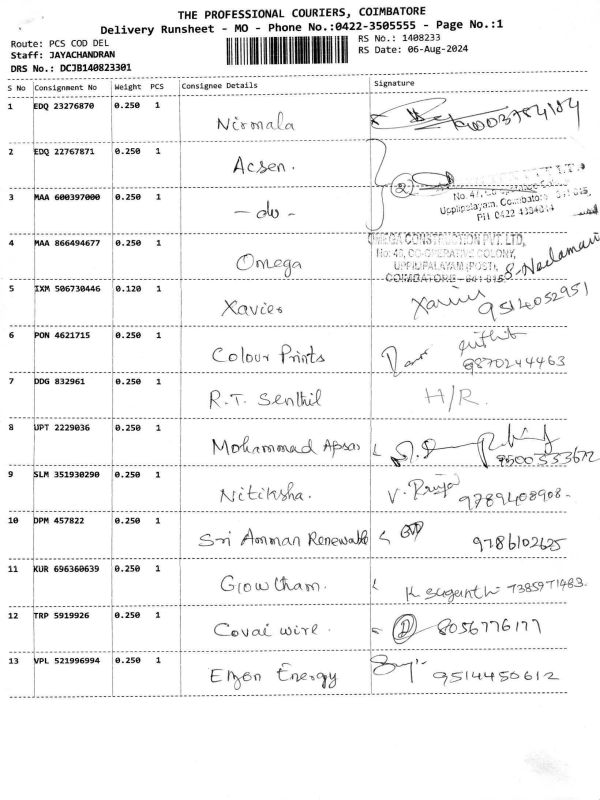 THE PROFESSIONAL COURIERS, COIMBATORE
Delivery Runsheet - MO - Phone No.:0422-3505555 - Page No.:1
Route: PCS COD DEL
RS No.: 1408233
Staff: JAYACHANDRAN
RS Date: 06-Aug-2024
DRS No.: DCJB140823301
S No Consignment No Weight PCS Consignee Details Signature
1 EDQ 23276870 0.250 1
Nirmala
2 EDQ 22767871 0.250 1
Acsen.
3 MAA 600397000 0.250 1
-do-
PH 0422 4334014
4 MAA 866494677 0.250 1
OMEGA CONSTRUCTION PVT. LTD,
No: 40, CO-OPERATIVE COLONY,
UPPILIPALAYAM (POST),
COIMBATORE - 641 015
Omega
5 IXM 506730446 0.120 1
Xavier Xavier 9514052951
6 PON 4621715 0.250 1
Colour Prints 9870244463
7 DDG 832961 0.250 1
R.T. Senthil H/R.
8 UPT 2229036 0.250 1
Mohammad Apsar 9500553672
9 SLM 351930290 0.250 1
Nitiksha. V. Priya 9789408908-
10 DPM 457822 0.250 1
Sri Amman Renewable 9786102625
11 KUR 696360639 0.250 1
Growtham. K Suganthi 7385971483.
12 TRP 5919926 0.250 1
Covai wire. 8056776177
13 VPL 521996994 0.250 1
Enzon Energy 9514450612